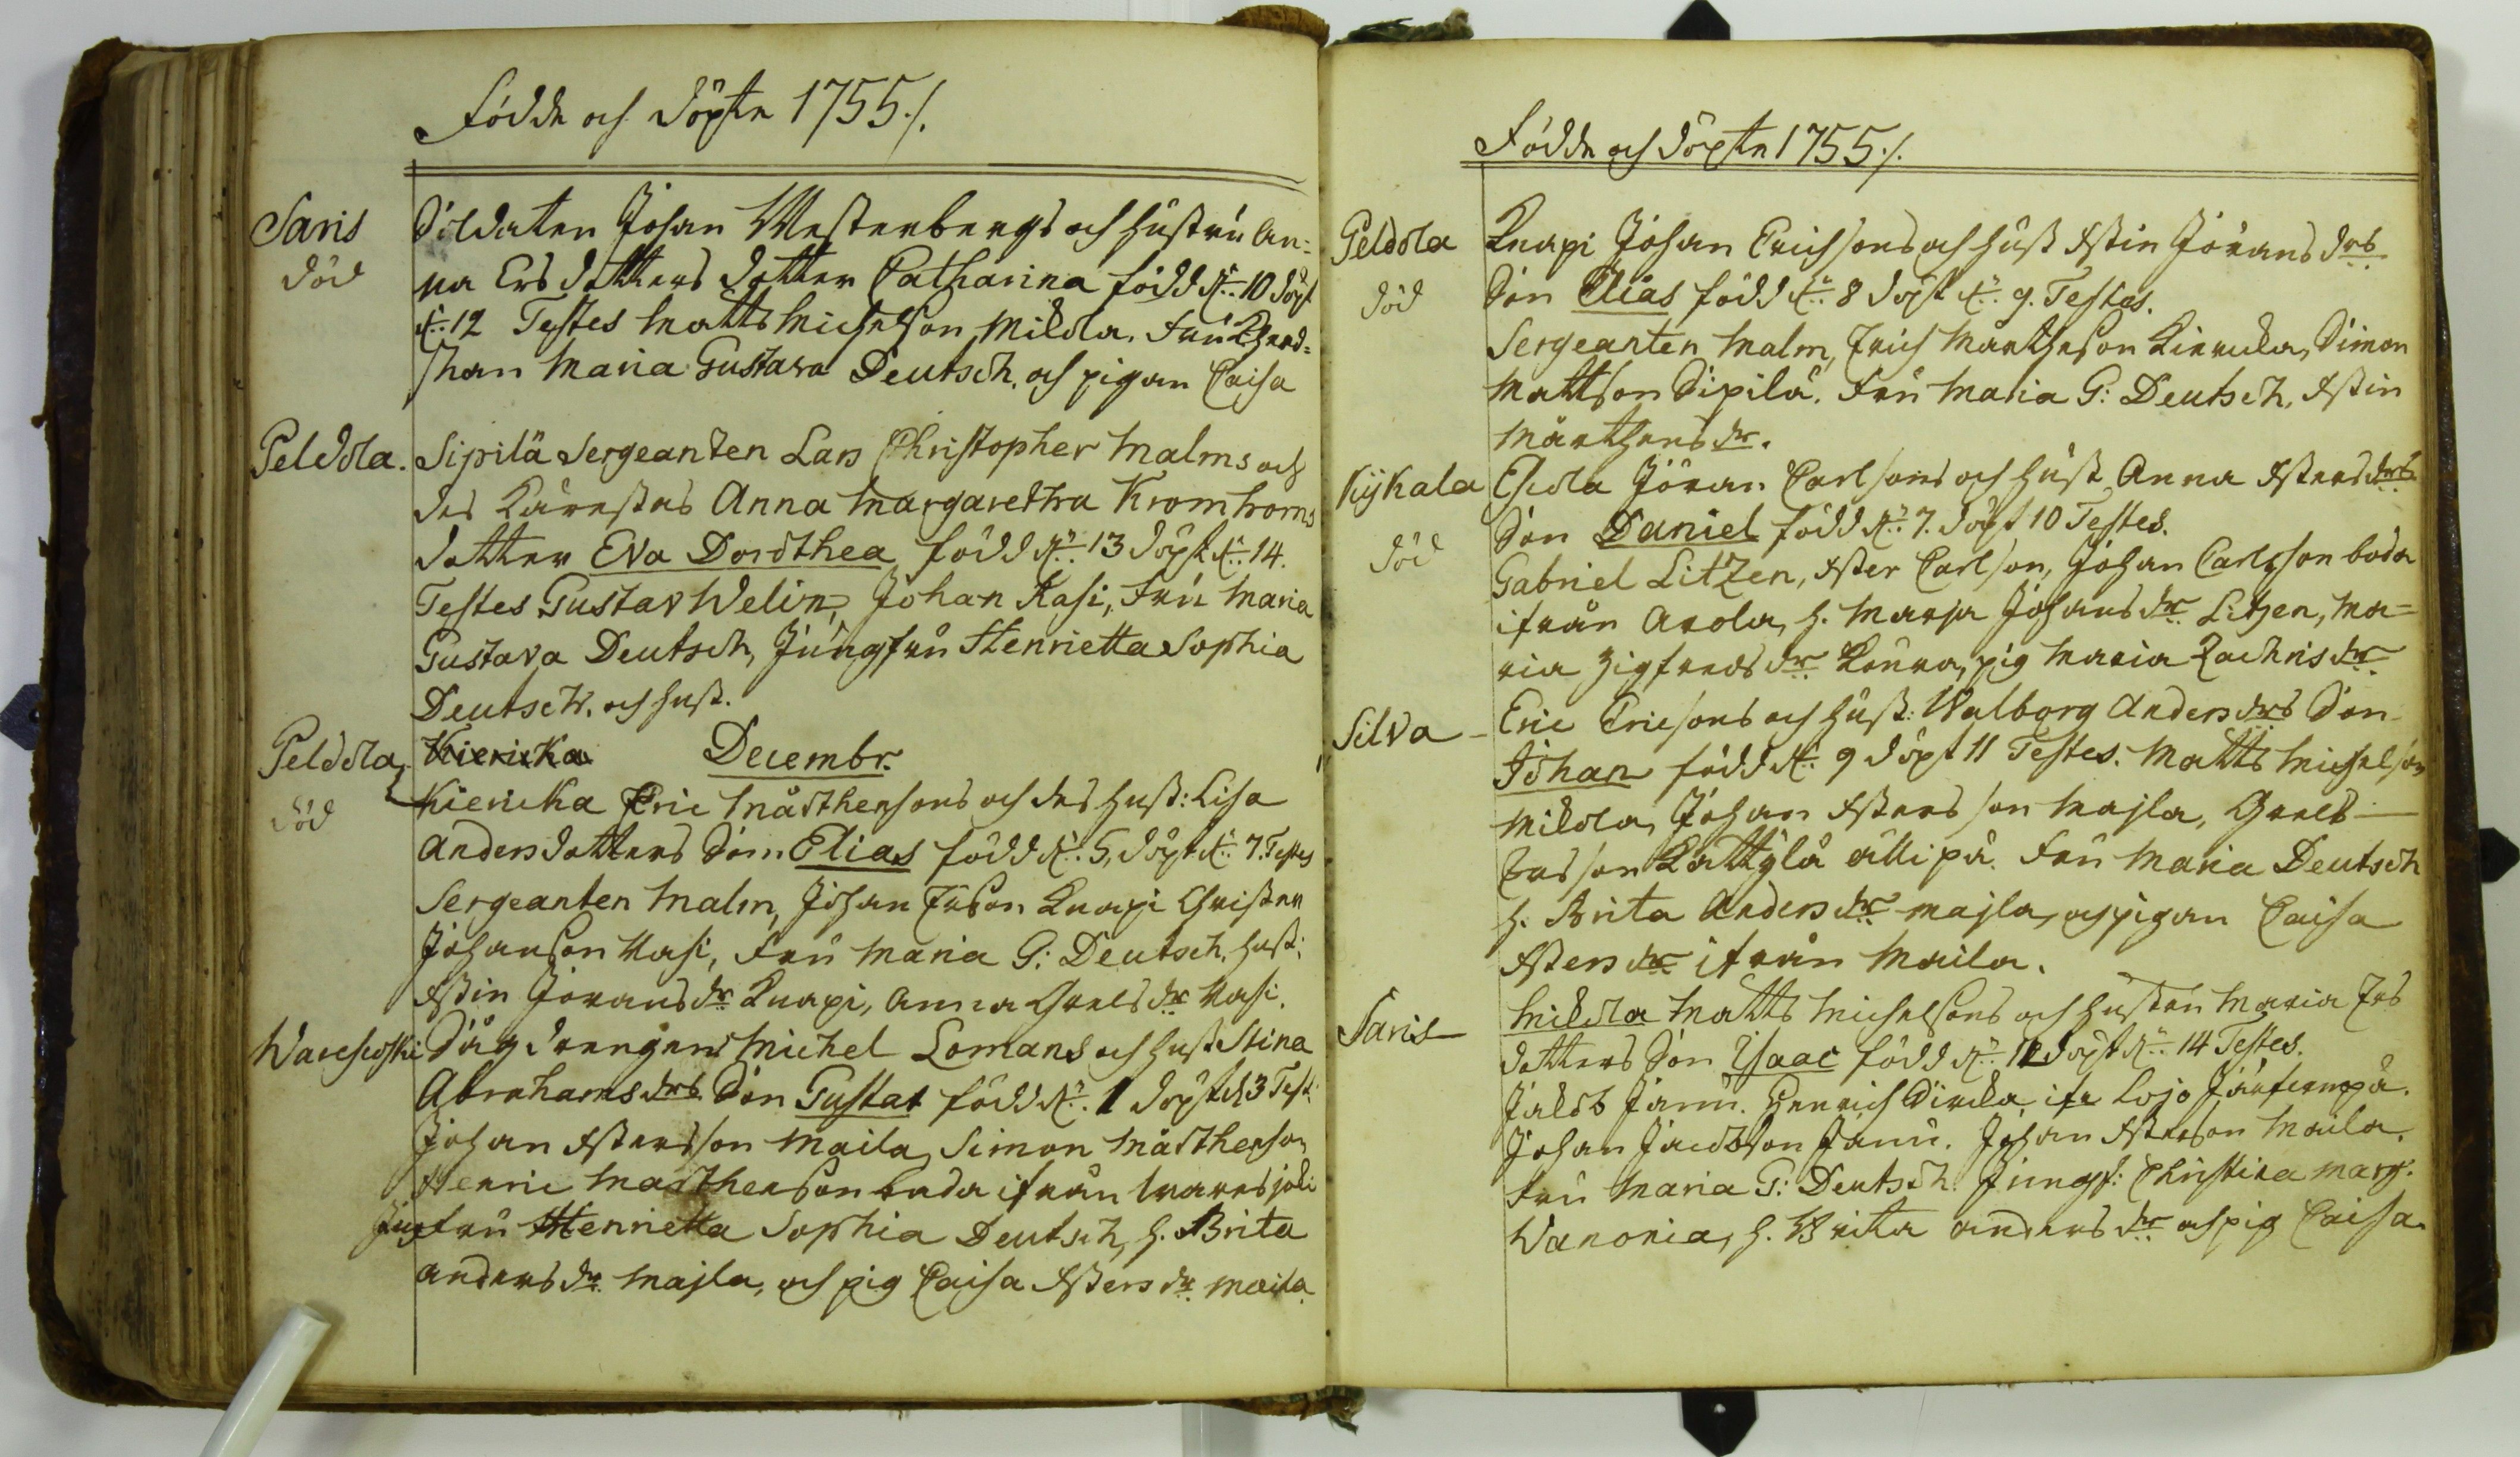 Födde och döpte 1755 ./.
Saris Soldaten Johan Westerbergs och hustru An=
död na Ersdotters dotter Catharina född d. 10 döpt
d. 12 Testes Matts Michelson Mikola. Fru
Maria Gustava Deutsch, och pigan Caisa
Peldola. Sipilä Sergeanten Lars Christopher Malms och
des Kärestas Anna Margaretha Kromhorns
dotter Eva Dorothea född d. 13 döpt d. 14.
Testes Gustav Welin, Johan Kasi, Fru Maria
Gustava Deutsch, Jungfru Henrietta Sophia
Deutsch. och hust.
Peldola Kiericka Decembr.
död Kiericka Eric Mårthensons och des hust: Lisa
Andersdotters Son Elias född d. 5, döpt d. 7. Testes
Sergeanten Malm, Johan Erson Knapi Christer
Johanson Kasi, Fru Maria G: Deutsch, hust:
Stin Jöransdr Knapi, Anna Grelsdr Kasi.
Warescoski Såg drengens Michel Lomans och hust Stina
Abrahamsdrs Son Gustav född d. 1 döpt d 3 Test:
Johan Stersson Maila, Simon Mårthenson
Henric Mårthenson bada ifrån Waresjoki
Jugfru Henrietta Sophia Deutsch, h. Brita
Andersdr Majla, och pig Caisa Stersdr Maila
Födde och döpte 1755 ./.
Peldola Knapi Johan Erichsons och hust Stin Jöransdrs
död Son Elias född d. 8 döpt d. 9. Testes.
Sergeanten Malm, Erich Mårthenson Kiericka, Simon
Mattson Sipilä. Fru Maria G: Deutsch, Stin
Mårthensdr.
Kijkala Eskola Jöran Carlsons och hust Anna Stersdrs
död Son Daniel född d. 7. döpt 10 Testes.
Gabriel Litzen, Ster Carlson, Johan Carlsson bada
ifrån Arola, h. Marja Johansdr Litzen, Ma=
ria Zigfredsdr Koura, pig Maria Zachrisdr
Silva - Eric Ericsons och hust: Walborg Andersdrs Son
Johan född d. 9 döpt 11 Testes. Matts Michelson
Mikola, Johan Sterson Majla, Grels -
Ersson Kättylä älli pä. Fru Maria Deutsch
h. Brita Andersdr Majla, och pigan Caisa
Stersdr ifrån Maila.
Saris - Mikola Matts Michelsons och hustru Maria Ers
dotters Son Isaac född d. 12 döpt d. 14 Testes.
Jakob Jänü. Henrich ifr Lojo
Johan Jacobson Jänü. Johan Sterson Maila.
Fru Maria G: Deutsch. Jungf: Christina Marg.
Wanonia, h. Brita Andersdr och pig Caisa.